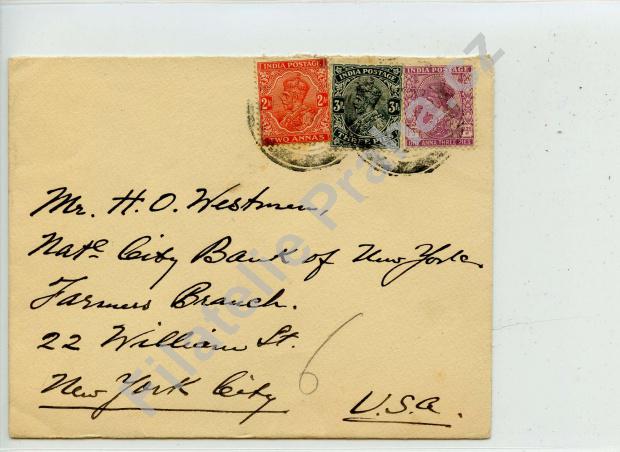 INDIA POSTAGE
2As
2As
TWO ANNAS
INDIA POSTAGE
3Ps
INDIA POSTAGE
ONE ANNA THREE PIES
Mr. H. O. Westman,
Natl City Bank of New York
Farmers Branch.
22 William St.
New York City
U.S.A.
6
Filatelie Praha.cz